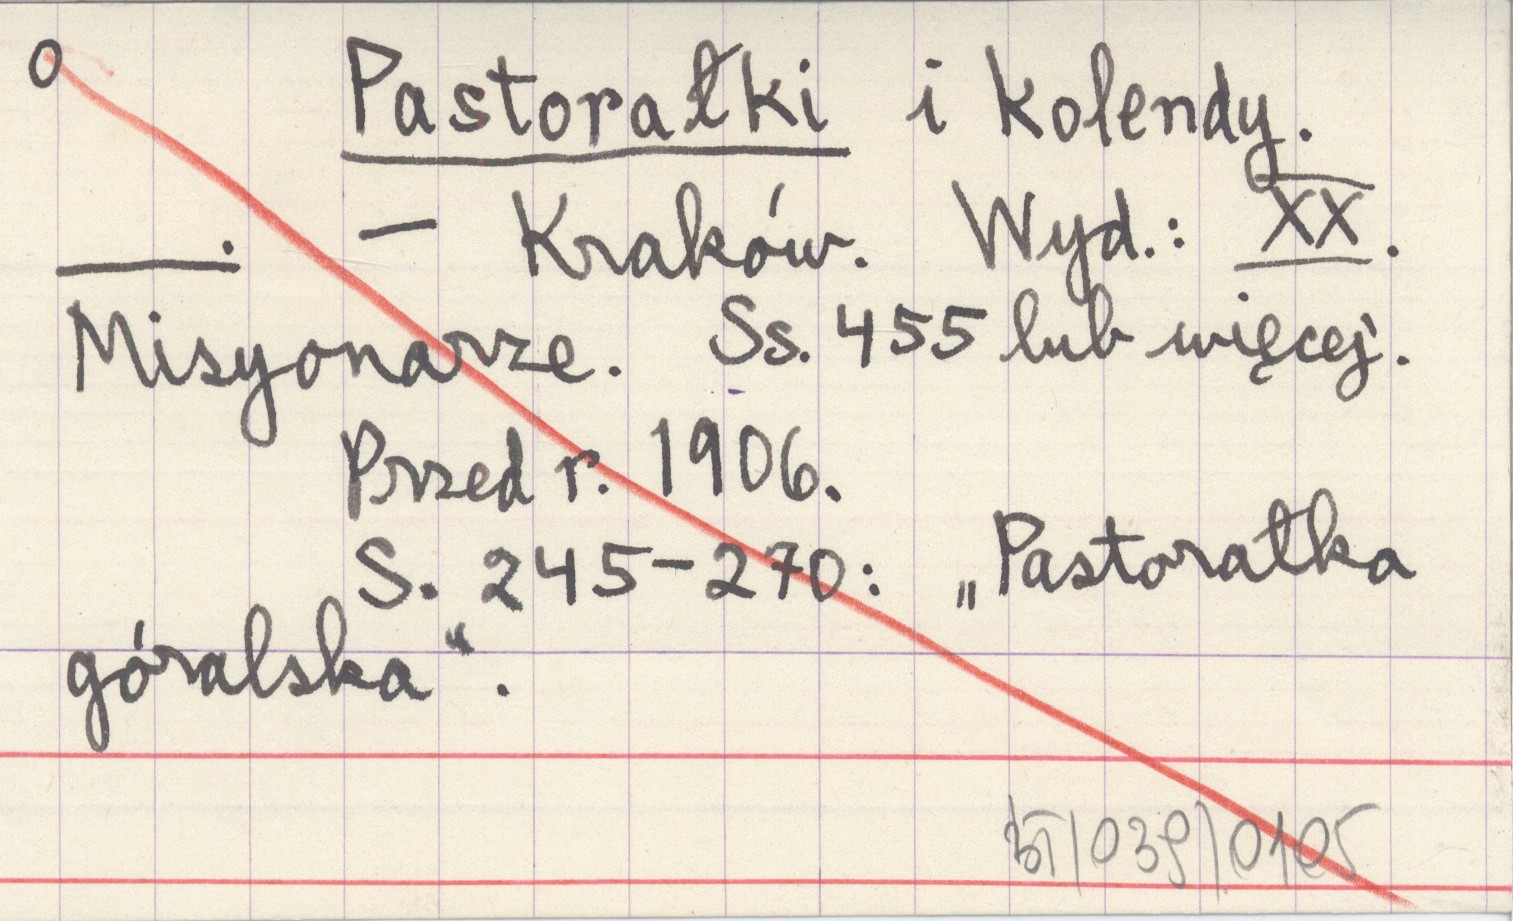 0 Pastorałki i Kolendy.
– Kraków. Wyd.: XX.
Misyonarze. Ss. 455 lub więcej.
Przed r. 1906.
S. 245–270: „Pastorałka
góralska“.
|039|0105